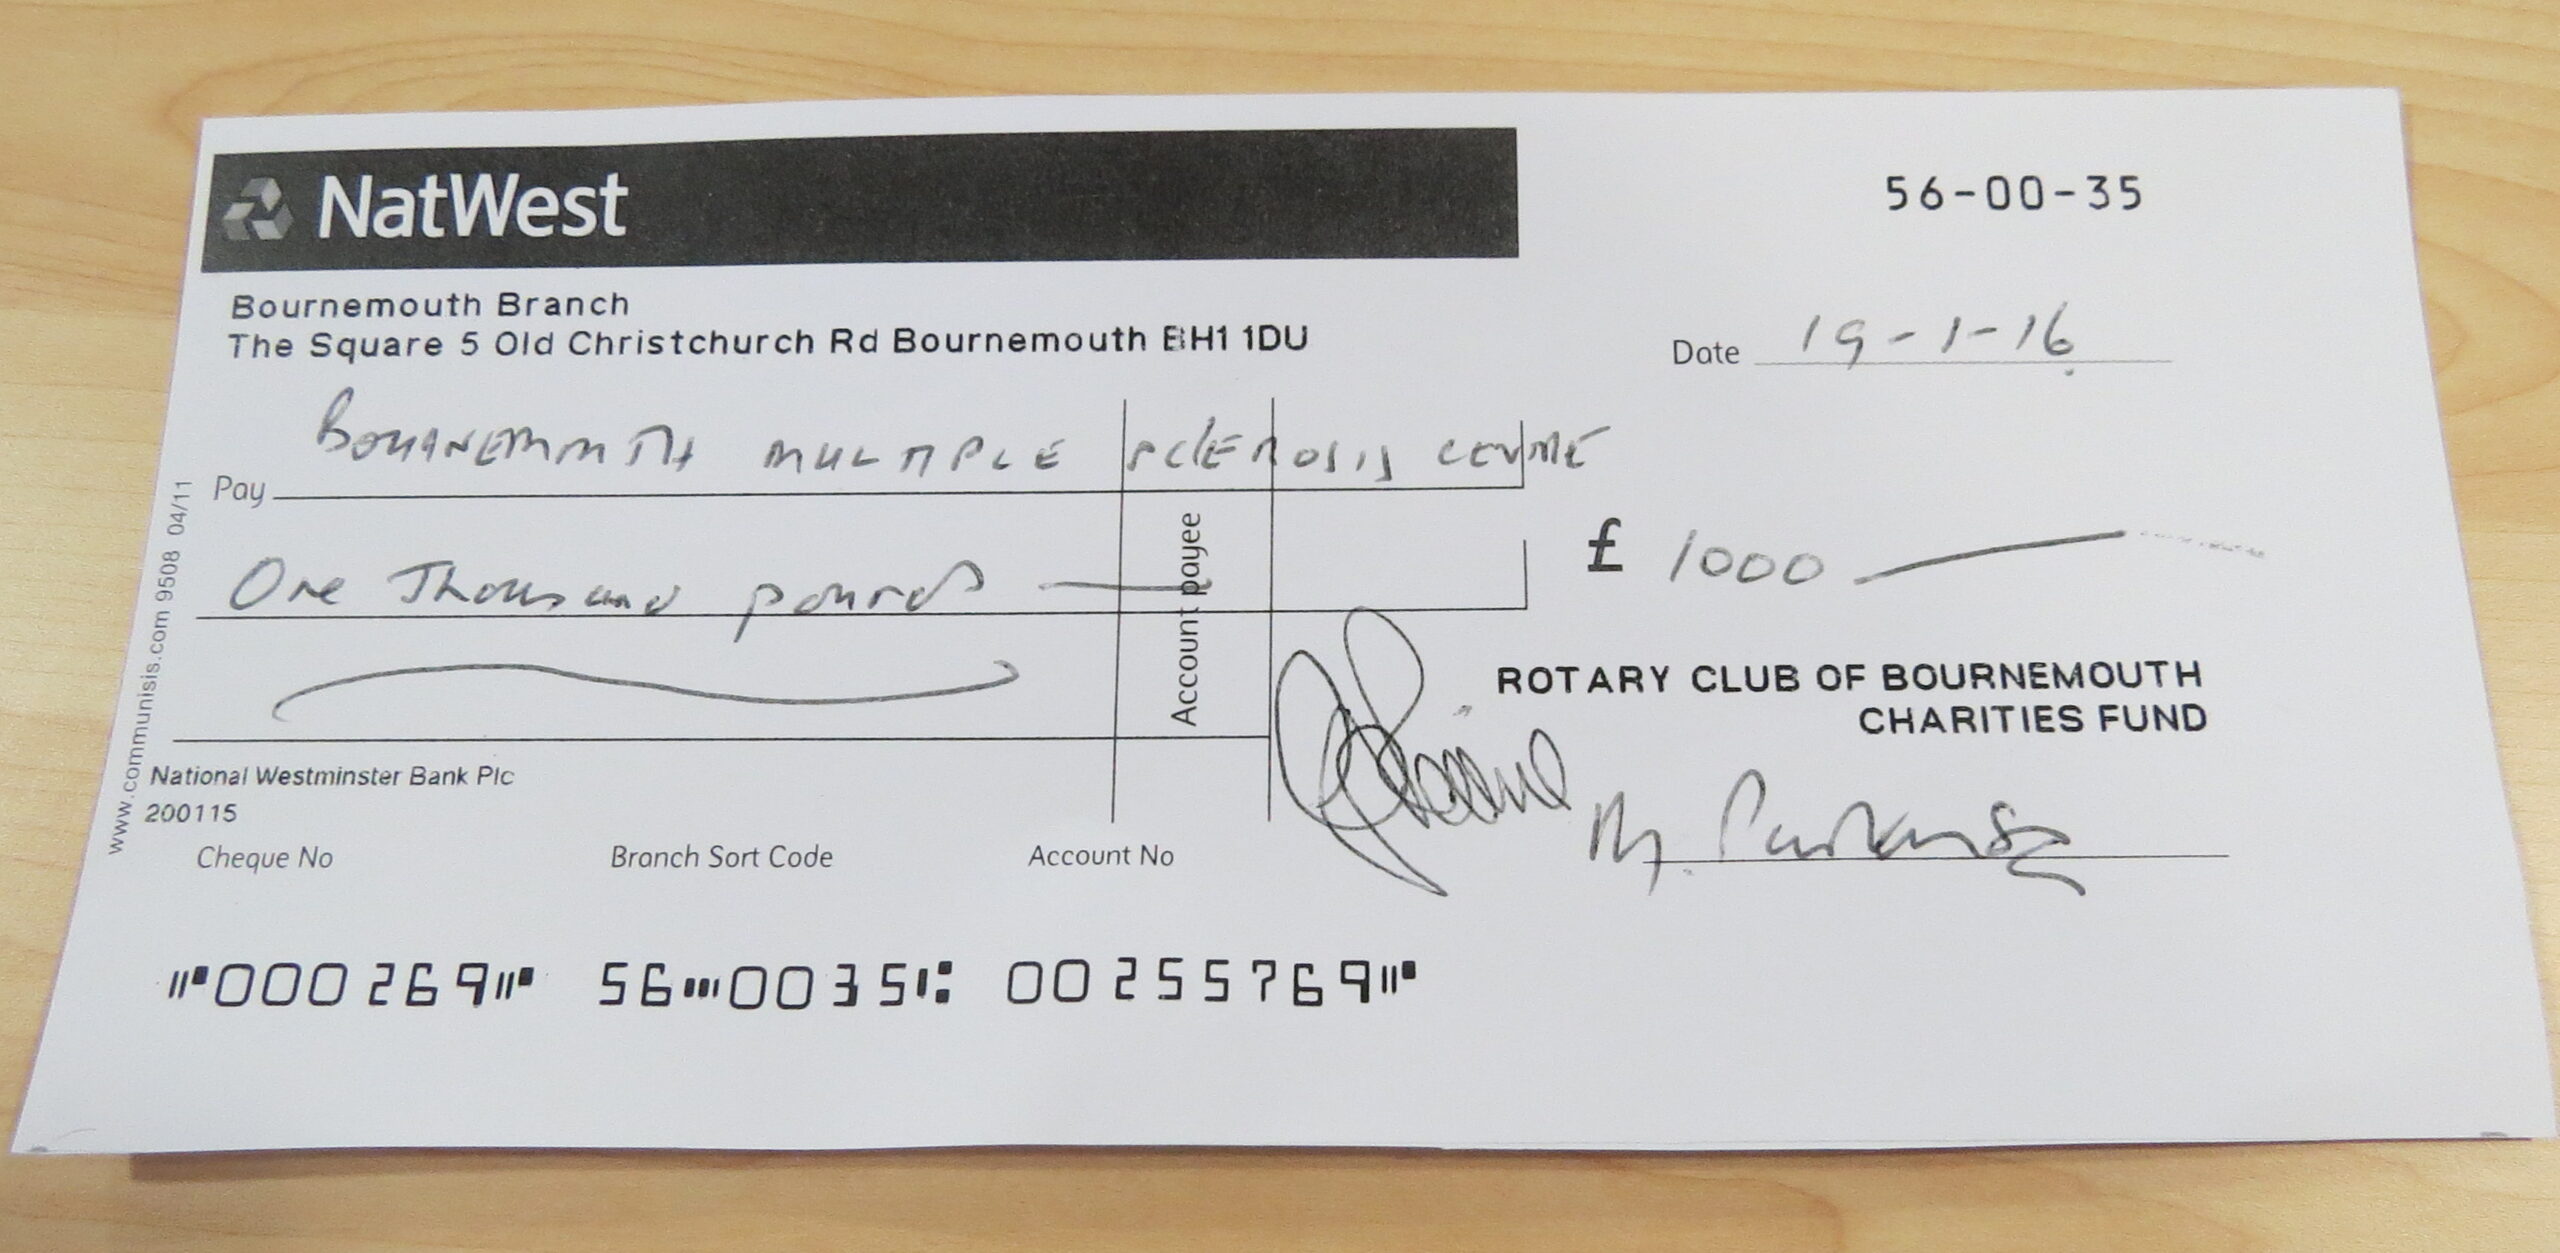 NatWest
56-00-35
Bournemouth Branch
The Square 5 Old Christchurch Rd Bournemouth BH1 1DU
Date 19-1-16
Pay BOURNEMOUTH MULTIPLE SCLEROSIS CENTRE
One Thousand pounds
£ 1000
Account payee
ROTARY CLUB OF BOURNEMOUTH
CHARITIES FUND
M. Parkinson
www.communisis.com 9508 04/11
National Westminster Bank Plc
200115
Cheque No Branch Sort Code Account No
⑈000269⑈ 56⑉0035⑆ 00255769⑈